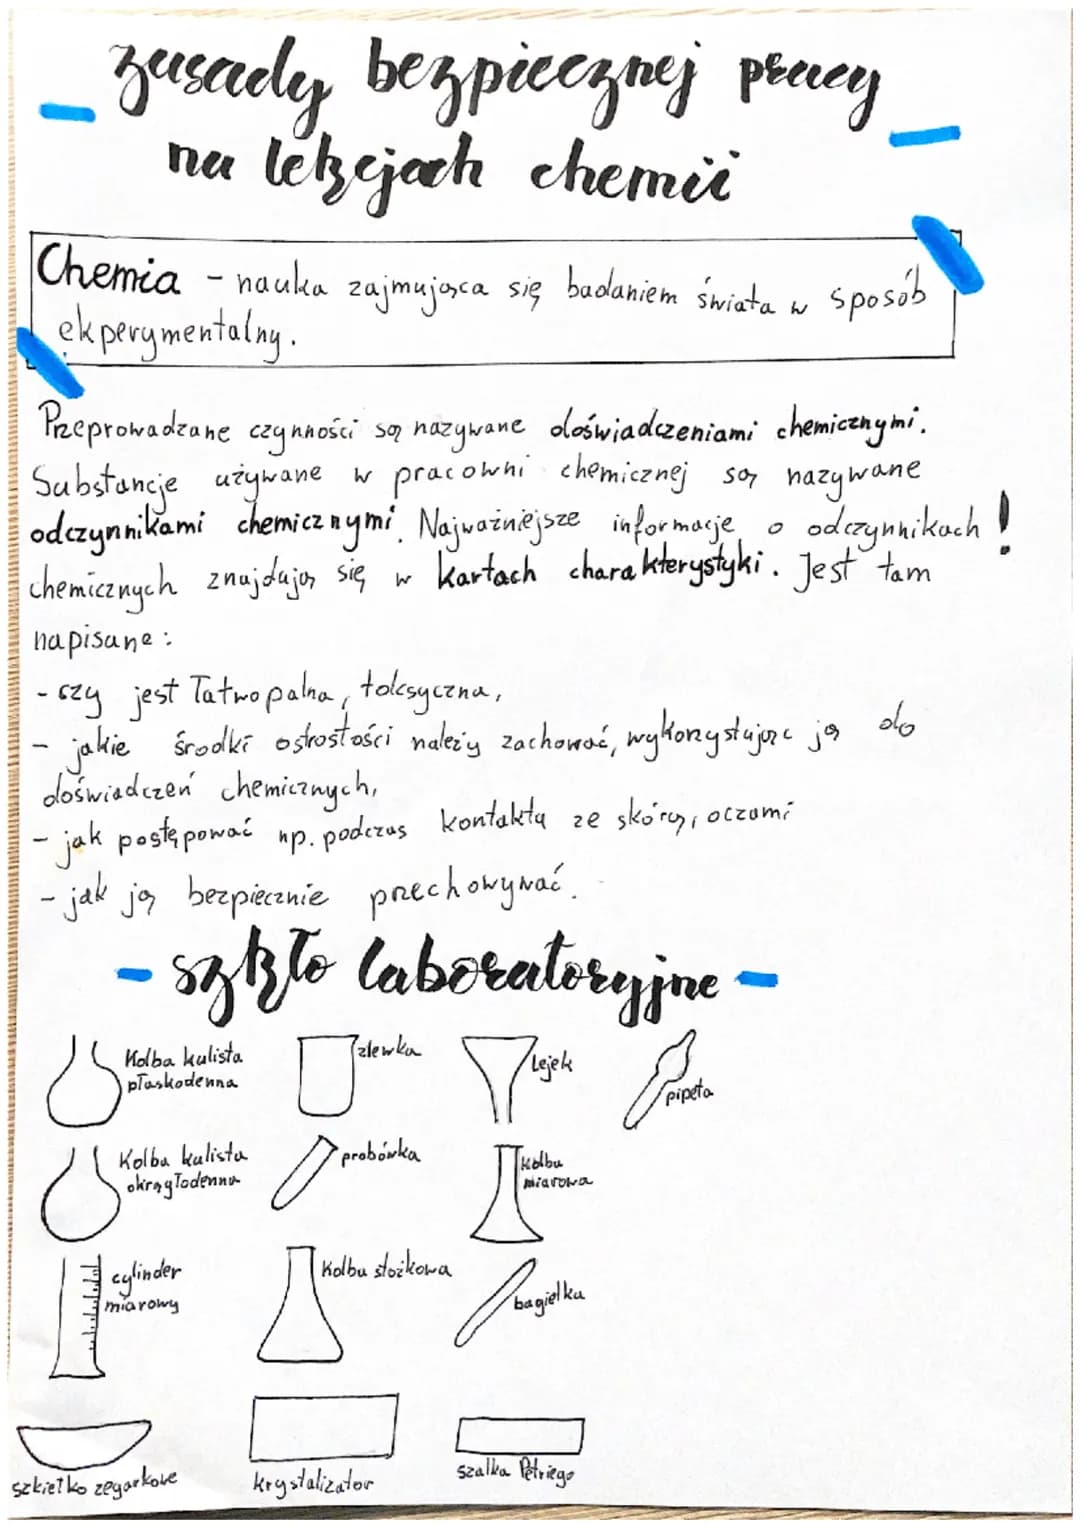 zasady bezpiecznej pracy
na lekcjach chemii
Chemia - nauka zajmująca się badaniem świata w sposób
ekperymentalny.
Przeprowadzane czynności są nazywane doświadczeniami chemicznymi.
Substancje używane w pracowni chemicznej są nazywane
odczynnikami chemicznymi. Najważniejsze informacje o odczynnikach !
chemicznych znajdują się w kartach charakterystyki. Jest tam
napisane:
- czy jest łatwopalna, toksyczna,
- jakie środki ostrostości należy zachować, wykorzystując ją do
doświadczeń chemicznych,
- jak postępować np. podczas kontaktu ze skórą, oczami
- jak ją bezpiecznie przechowywać.
- szkło laboratoryjne -
Kolba kulista
płaskodenna
zlewka
Lejek
pipeta
Kolba kulista
okrągłodenna
probówka
kolba
miarowa
cylinder
miarowy
Kolba stożkowa
bagielka
szkiełko zegarkowe
krystalizator
szalka Petriego